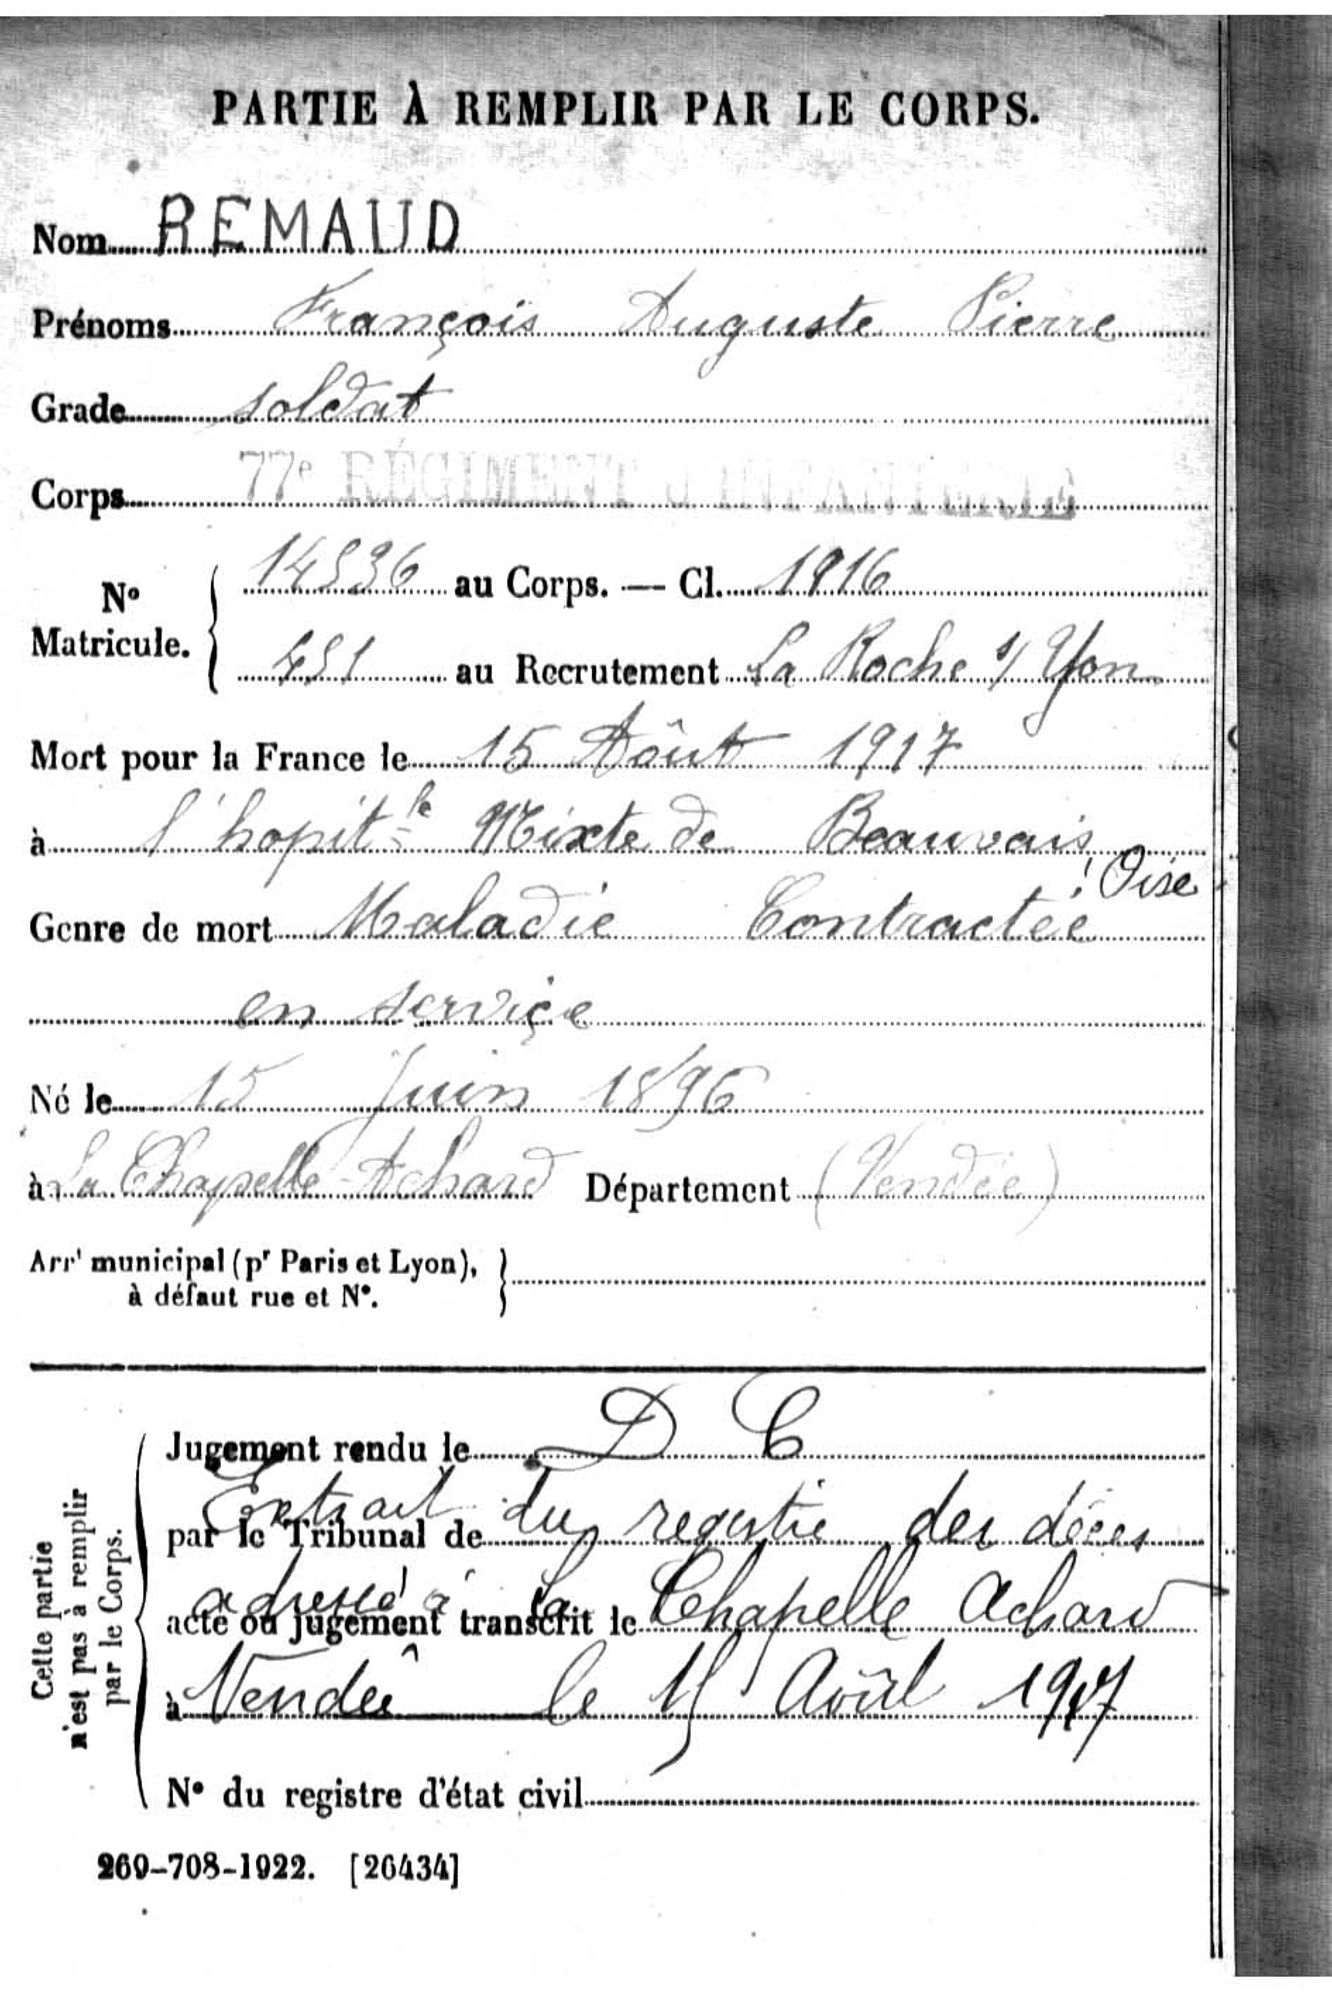 PARTIE À REMPLIR PAR LE CORPS.
Nom REMAUD
Prénoms François Auguste Pierre
Grade soldat
Corps 77e RÉGIMENT D'INFANTERIE
No Matricule. 14536 au Corps. — Cl. 1916
451 au Recrutement La Roche s/ Yon
Mort pour la France le 15 Aôut 1917
à l'hopit=le Mixte de Beauvais
! Oise
Genre de mort Maladie Contractée
en serviçe
Né le 15 Juin 1896
à La Chapelle-Achard Département (Vendée)
Arrt municipal (pr Paris et Lyon),
à défaut rue et No.
Cette partie
n'est pas à remplir
par le Corps.
Jugement rendu le D C
Extrait du registre des décès
par le Tribunal de
adressé à la Chapelle Achard
acte ou jugement transcrit le
à Vendée le 15 Août 1917
No du registre d'état civil
269-708-1922. [26434]